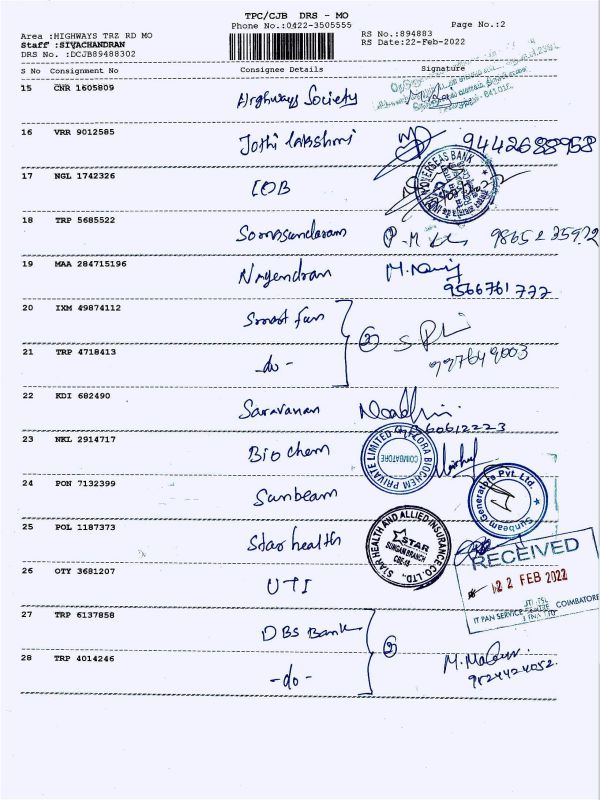 TPC/CJB DRS - MO
Phone No.:0422-3505555
Page No.:2
Area :HIGHWAYS TRZ RD MO
Staff :SIVACHANDRAN
DRS No. :DCJB89488302
RS No.:894883
RS Date:22-Feb-2022
S No Consignment No Consignee Details Signature
15 CNR 1605809 Highways Society
16 VRR 9012585 Jothi lakshmi 9442688958
17 NGL 1742326 IOB
OVERSEAS BANK
18 TRP 5685522 Somasundaram P.M
19 MAA 284715196 Nagendran M.
9566761777
20 IXM 49874112 Smart fan
2
21 TRP 4718413 -do-
22 KDI 682490 Saravanan
23 NKL 2914717 Bio chem
FLORA BIOCHEM PRIVATE LIMITED
COIMBATORE
24 PON 7132399 Sunbeam
Sunbeam Generators Pvt. Ltd.
25 POL 1187373 Star health
STAR HEALTH AND ALLIED INSURANCE CO. LTD.,
STAR
SUNGAM BRANCH
CBE-18
26 OTY 3681207 UTI
RECEIVED
22 FEB 2022
IT PAN SERVICE CENTRE
COIMBATORE
27 TRP 6137858 DBS Bank
2
28 TRP 4014246 -do-